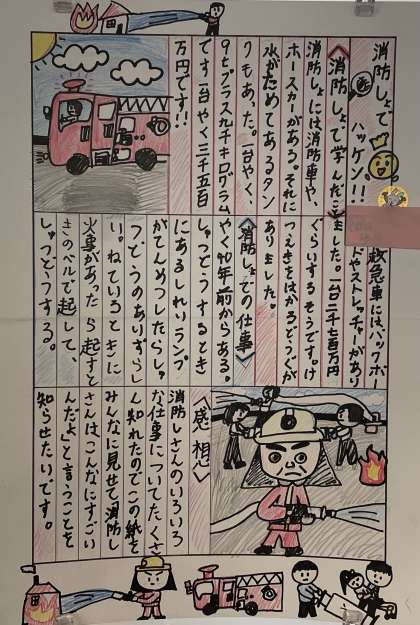 消防しょで
ハッケン!!
〈消防しょで学んだこと
消防しょには消防車や、
ホースカーがある。それに
水がためてあるタン
クもあった。一台やく、
9tプラス九千キログラム
です。一台やく三千五百
万円です!!
救急車には、バックボー
ドやストレッチャーがあり
ました。一台二千七百万円
ぐらいするそうです。け
つえきをはかるどうぐが
ありました。
〈消防しょでの仕事〉
やく40年前からある。
しゅつどうするとき
にあるしれいランプ
がてんめつしたらしゅ
つどうのありずらし
い。ねているときに
火事があったら起すと
きのベルで起して、
しゅつどうする。
〈感想〉
消防しさんのいろいろ
な仕事についてたくさ
ん知れたのでこの紙を
みんなに見せて消防し
さんはこんなにすごい
んだよ」と言うことを
知らせたいです。